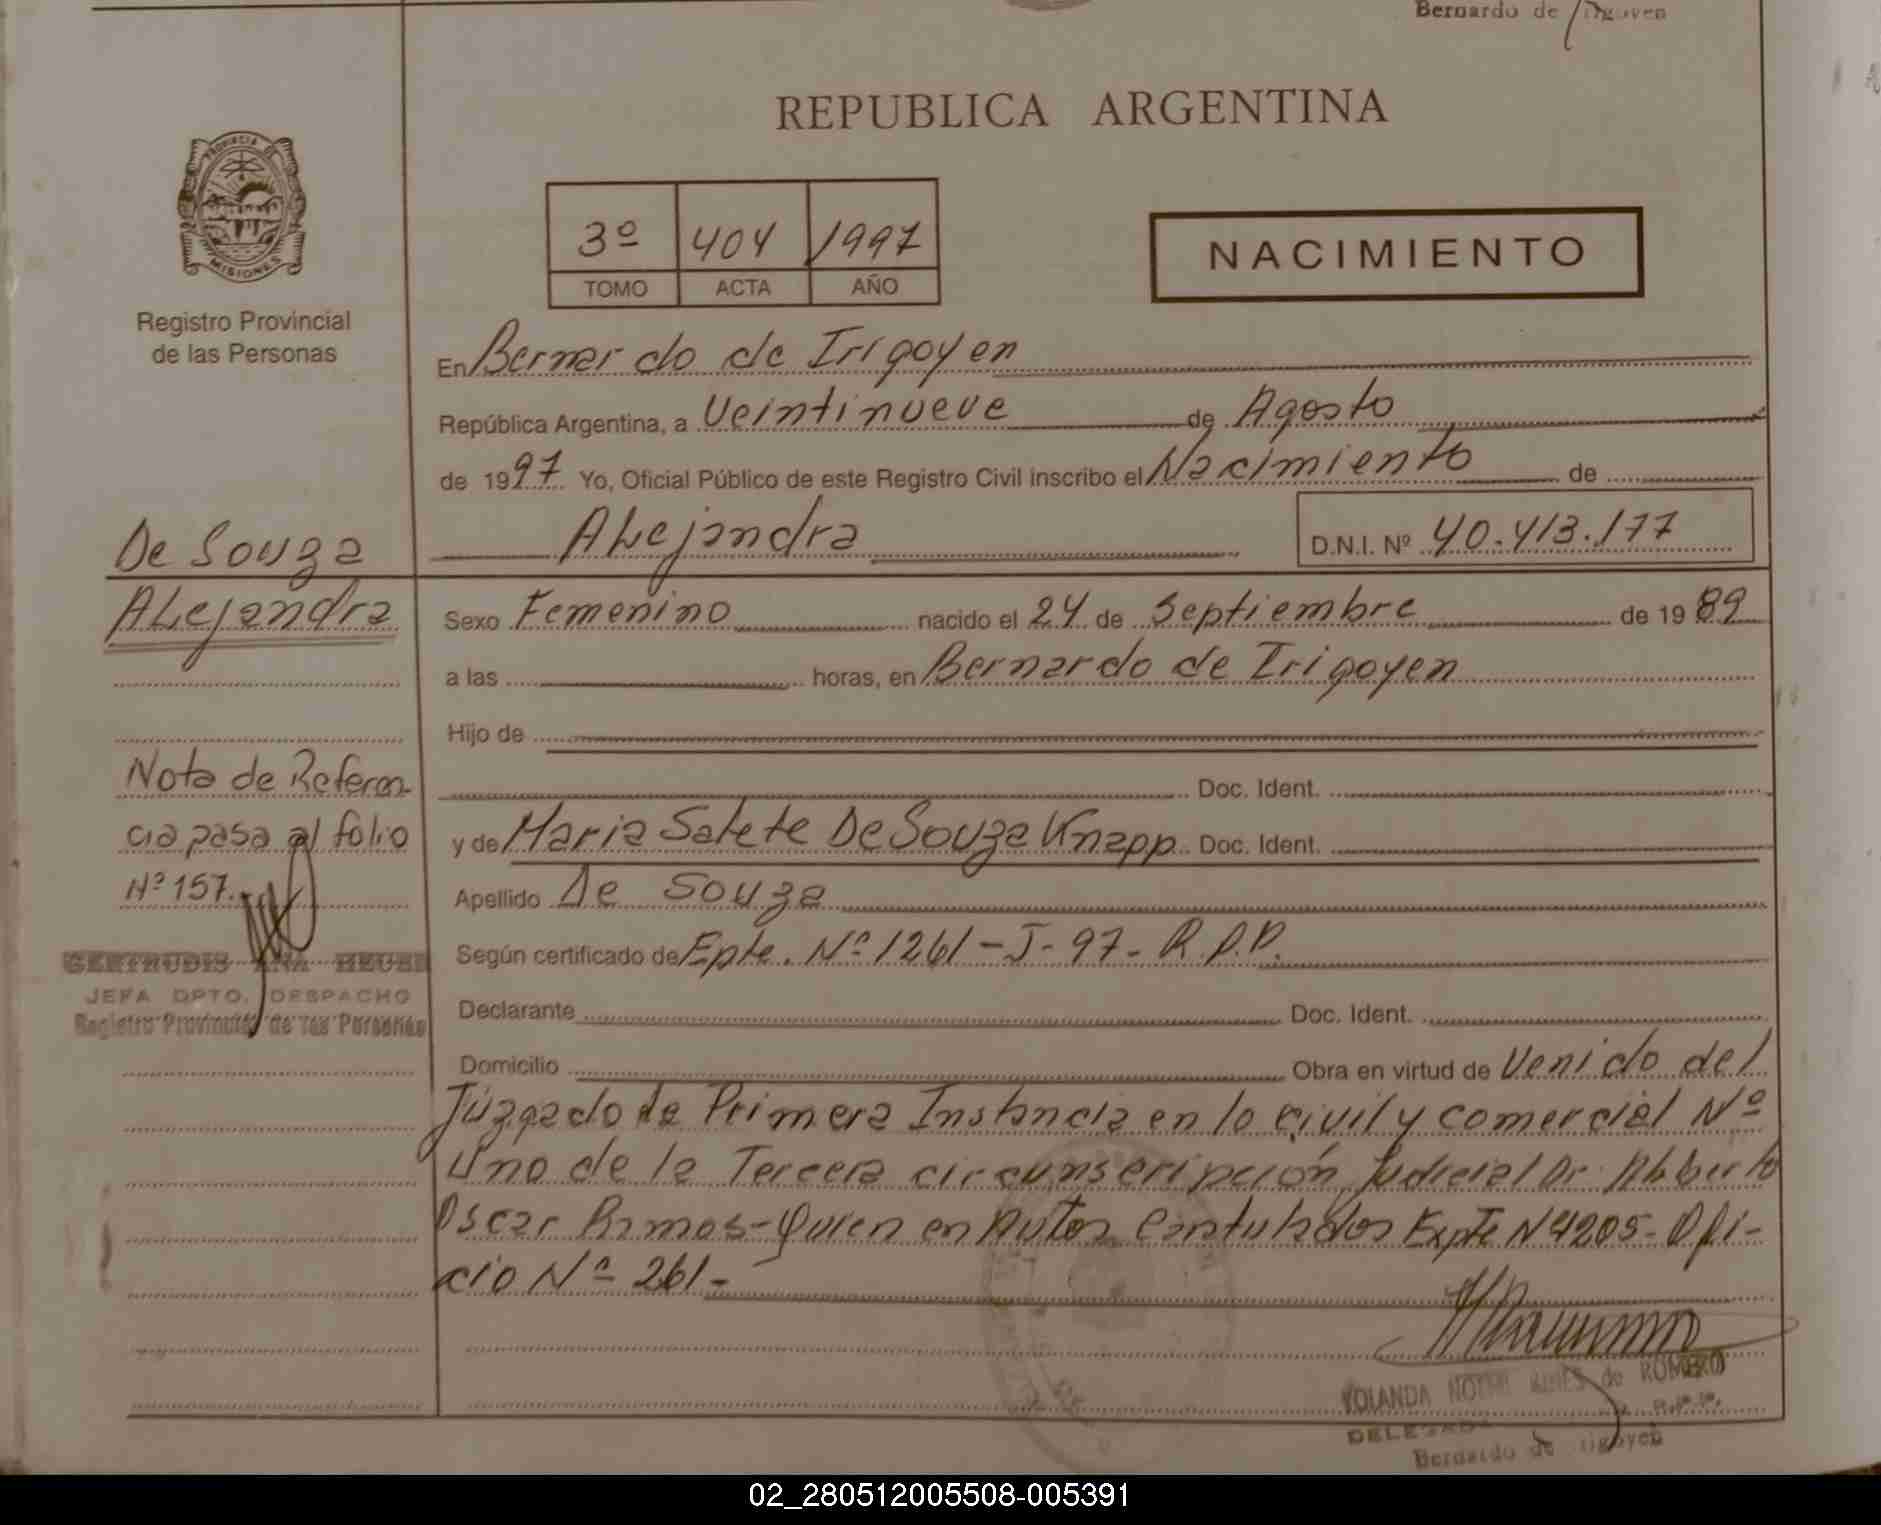 Bernardo de Irigoyen
REPUBLICA ARGENTINA
PROVINCIA DE
MISIONES
Registro Provincial
de las Personas
3º 404 1997
TOMO ACTA AÑO
NACIMIENTO
En Bernardo de Irigoyen
República Argentina, a Veintinueve de Agosto
de 1997 Yo, Oficial Público de este Registro Civil inscribo el Nacimiento de
Alejandra D.N.I. Nº 40.413.177
De Souza
Alejandra
Sexo Femenino nacido el 24 de Septiembre de 1989
a las horas, en Bernardo de Irigoyen
Hijo de
Doc. Ident.
y de Maria Salete De Souza Knapp Doc. Ident.
Apellido De Souza
Según certificado de Epte. Nº 1261-J-97- R.P.P.
Declarante Doc. Ident.
Domicilio Obra en virtud de Venido del
Juzgado de Primera Instancia en lo civil y comercial Nº
Uno de la Tercera circunscripción Judicial Dr. Alberto
Oscar Ramos-Quien en Autos Caratulados Expte N 4205- Ofi-
cio Nº 261-
Nota de Referen-
cia pasa al folio
Nº 157.
GERTRUDIS ANA
JEFA DPTO. DESPACHO
Registro Provincial de las Personas
YOLANDA de ROMERO
DELEGADA
Bernardo de Irigoyen
02_280512005508-005391